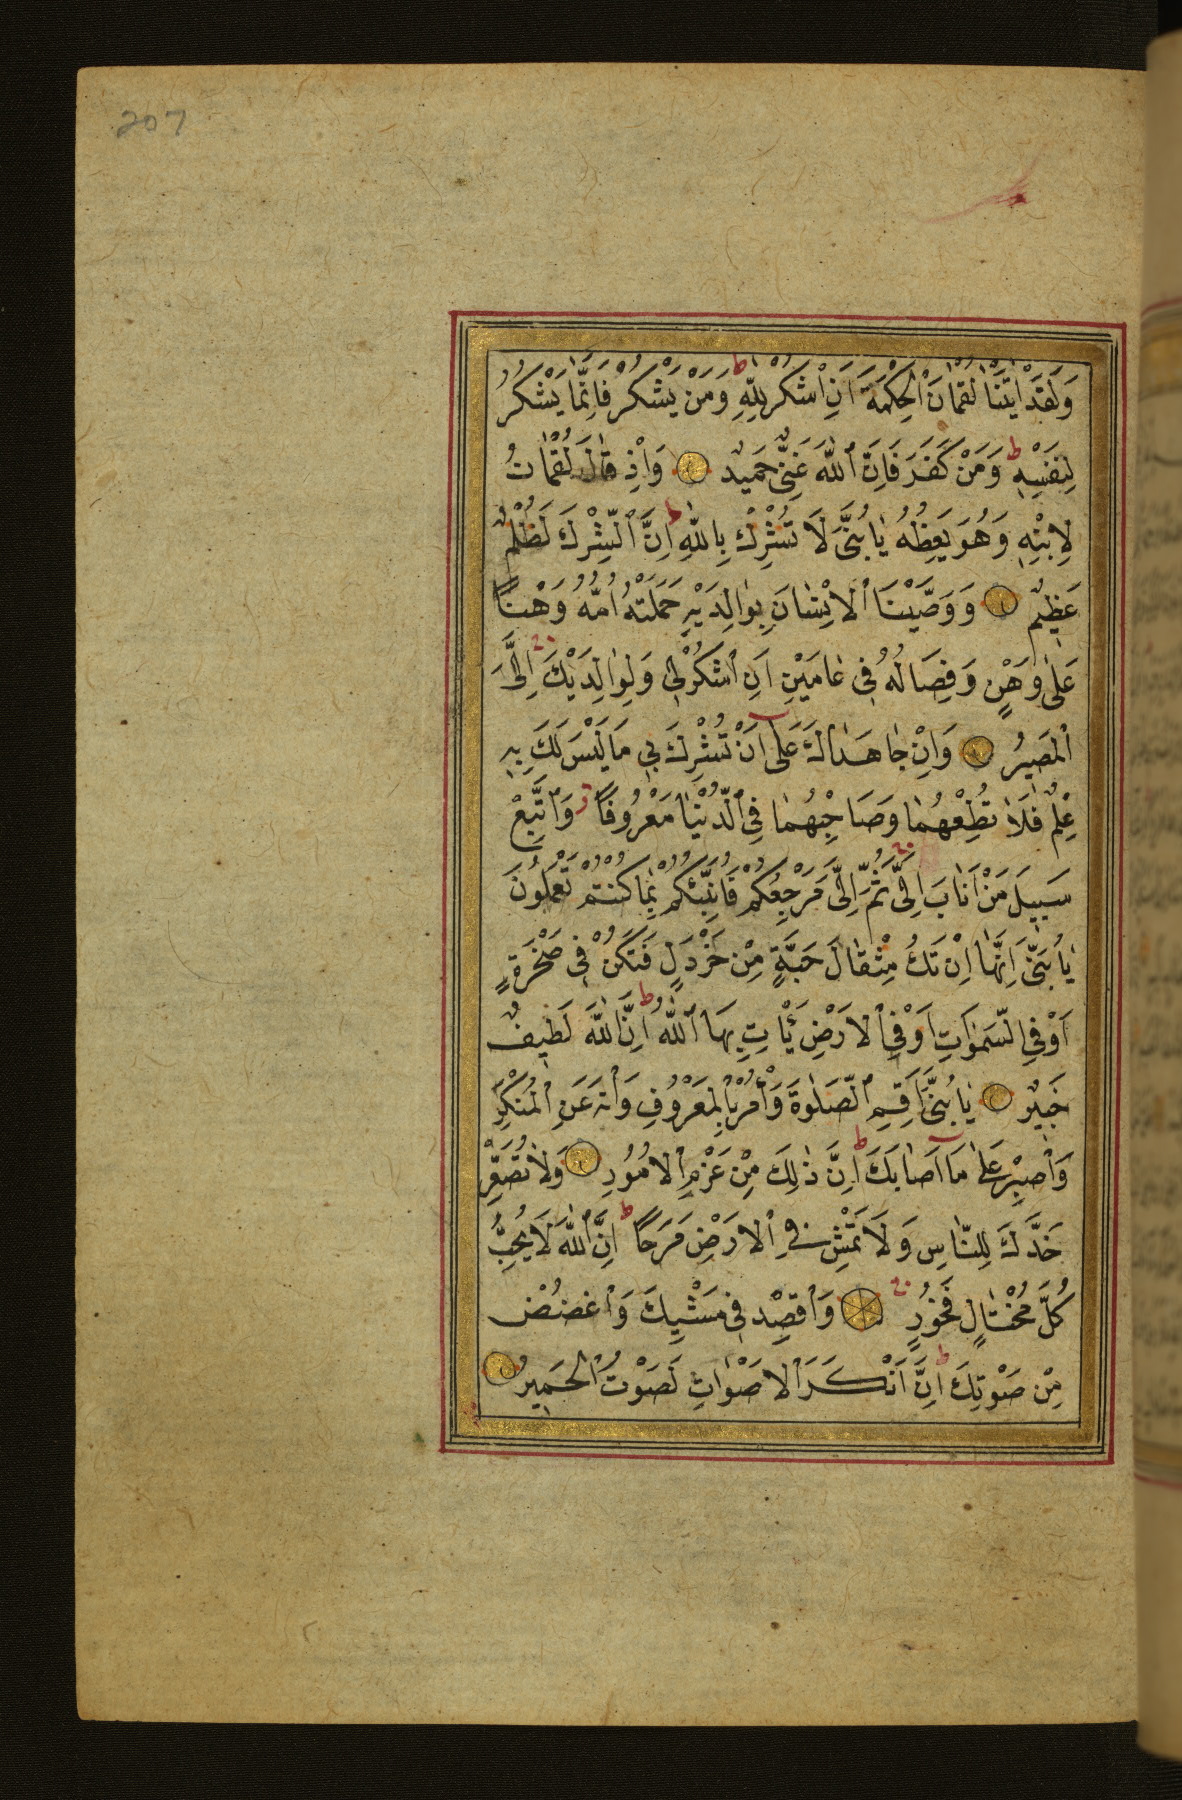 207
وَلَقَدْ اٰتَيْنَا لُقْمَانَ الْحِكْمَةَ اَنِ اشْكُرْ لِلّٰهِ ط وَمَنْ يَشْكُرْ فَاِنَّمَا يَشْكُرُ
لِنَفْسِهٖ ط وَمَنْ كَفَرَ فَاِنَّ اللّٰهَ غَنِىٌّ حَمِيدٌ وَاِذْ قَالَ لُقْمَانُ
لِابْنِهٖ وَهُوَ يَعِظُهُ يَا بُنَىَّ لَا تُشْرِكْ بِاللّٰهِ ط اِنَّ الشِّرْكَ لَظُلْمٌ
عَظِيمٌ وَوَصَّيْنَا الْاِنْسَانَ بِوَالِدَيْهِ حَمَلَتْهُ اُمُّهُ وَهْنًا
عَلٰى وَهْنٍ وَفِصَالُهُ فِى عَامَيْنِ اَنِ اشْكُرْ لِى وَلِوَالِدَيْكَ اِلَىَّ
الْمَصِيرُ وَاِنْ جَاهَدَاكَ عَلٰى اَنْ تُشْرِكَ بِى مَا لَيْسَ لَكَ بِهٖ
عِلْمٌ فَلَا تُطِعْهُمَا وَصَاحِبْهُمَا فِى الدُّنْيَا مَعْرُوفًا ز وَاتَّبِعْ
سَبِيلَ مَنْ اَنَابَ اِلَىَّ ثُمَّ اِلَىَّ مَرْجِعُكُمْ فَاُنَبِّئُكُمْ بِمَا كُنْتُمْ تَعْمَلُونَ
يَا بُنَىَّ اِنَّهَا اِنْ تَكُ مِثْقَالَ حَبَّةٍ مِنْ خَرْدَلٍ فَتَكُنْ فِى صَخْرَةٍ
اَوْ فِى السَّمٰوَاتِ اَوْ فِى الْاَرْضِ يَأْتِ بِهَا اللّٰهُ ط اِنَّ اللّٰهَ لَطِيفٌ
خَبِيرٌ يَا بُنَىَّ اَقِمِ الصَّلٰوةَ وَأْمُرْ بِالْمَعْرُوفِ وَانْهَ عَنِ الْمُنْكَرِ
وَاصْبِرْ عَلٰى مَا اَصَابَكَ ط اِنَّ ذٰلِكَ مِنْ عَزْمِ الْاُمُورِ وَلَا تُصَعِّرْ
خَدَّكَ لِلنَّاسِ وَلَا تَمْشِ فِى الْاَرْضِ مَرَحًا ط اِنَّ اللّٰهَ لَا يُحِبُّ
كُلَّ مُخْتَالٍ فَخُورٍ وَاقْصِدْ فِى مَشْيِكَ وَاغْضُضْ
مِنْ صَوْتِكَ ط اِنَّ اَنْكَرَ الْاَصْوَاتِ لَصَوْتُ الْحَمِيرِ